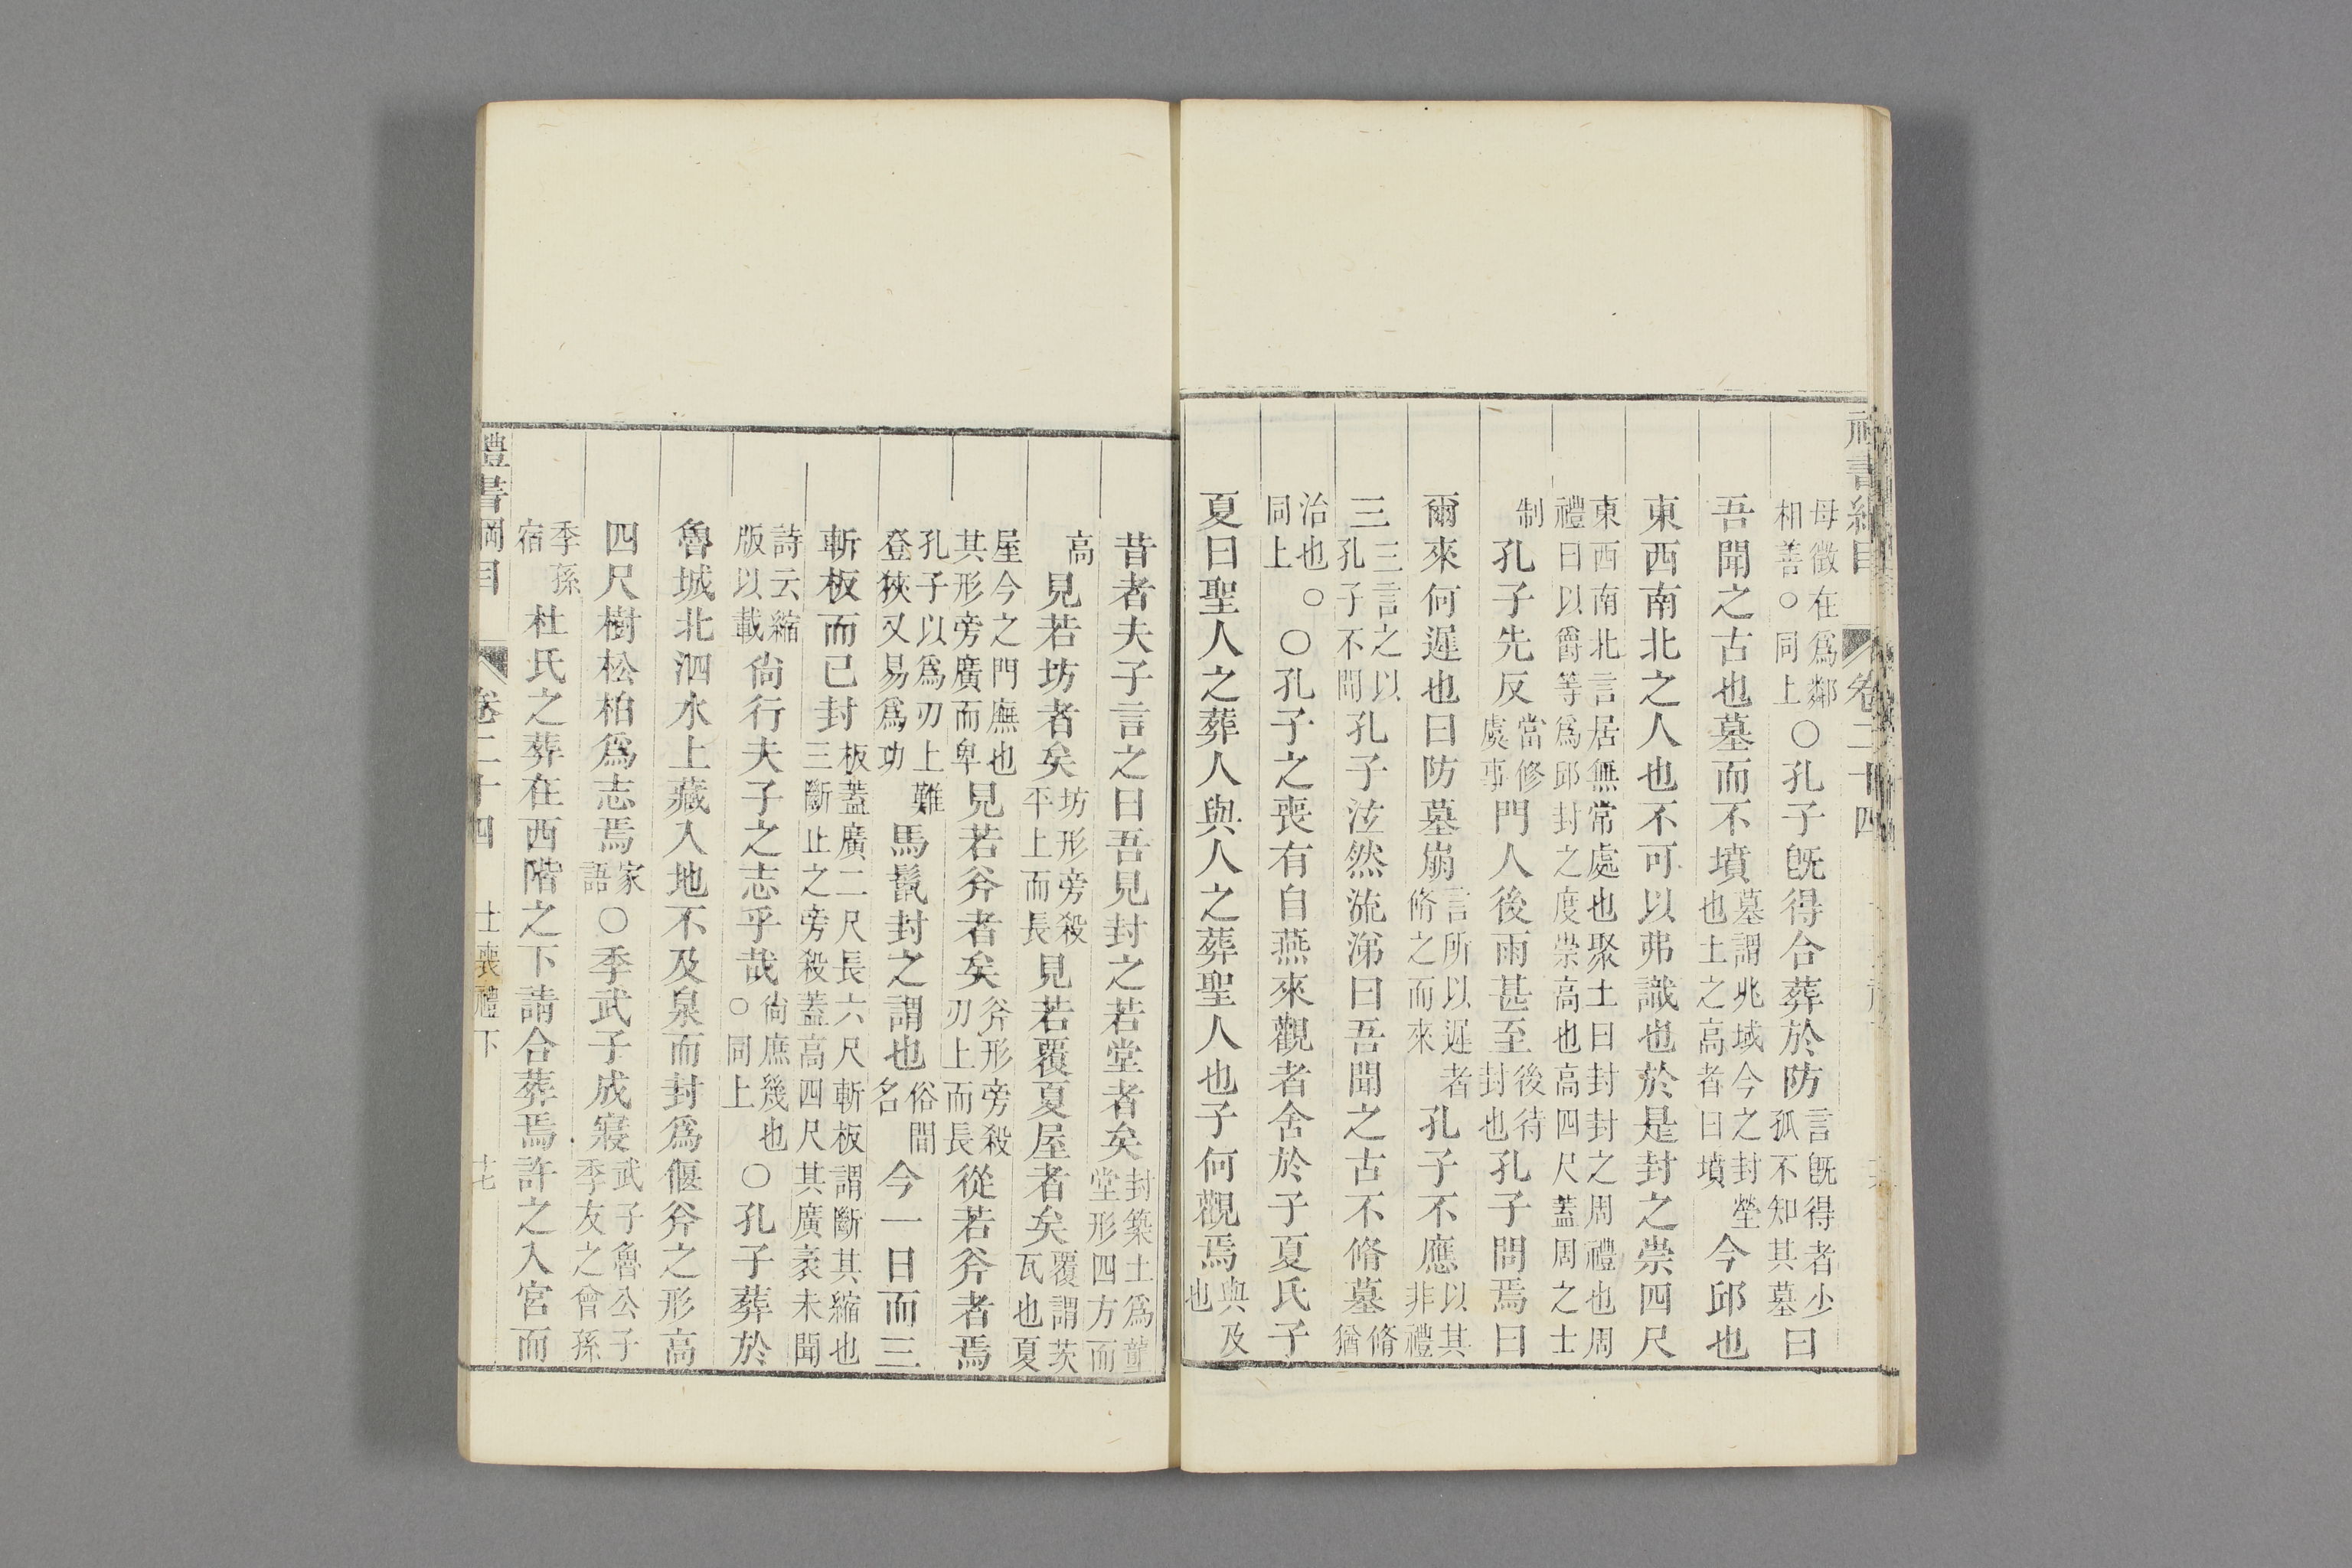 書綱目 卷二十四
母徵在爲鄰相善○同上○孔子旣得合葬於防言旣得者少孤不知其墓曰
吾聞之古也墓而不墳墓謂兆域今之封塋也土之高者曰墳今邱也
東西南北之人也不可以弗識也於是封之崇四尺
東西南北言居無常處也聚土曰封封之周禮也周禮曰以爵等爲邱封之度崇高也高四尺蓋周之士
制孔子先反當修處事門人後雨甚至後待封也孔子問焉曰
爾來何遲也曰防墓崩言所以遲者脩之而來孔子不應以其非禮
三三言之以孔子不聞孔子泫然流涕曰吾聞之古不脩墓脩猶
治也○同上○孔子之喪有自燕來觀者舍於子夏氏子
夏曰聖人之葬人與人之葬聖人也子何觀焉與及也
昔者夫子言之曰吾見封之若堂者矣封築土爲壟堂形四方而
高見若坊者矣坊形旁殺平上而長見若覆夏屋者矣覆謂茨瓦也夏
屋今之門廡也其形旁廣而卑見若斧者矣斧形旁殺刃上而長從若斧者焉
孔子以爲刃上難登狹又易爲功馬鬛封之謂也俗間名今一日而三
斬板而已封板蓋廣二尺長六尺斬板謂斷其縮也三斷止之旁殺蓋高四尺其廣袤未聞
詩云縮版以載尙行夫子之志乎哉尙庶幾也○同上○孔子葬於
魯城北泗水上藏入地不及泉而封爲偃斧之形高
四尺樹松柏爲志焉家語○季武子成寢武子魯公子季友之曾孫
季孫宿杜氏之葬在西階之下請合葬焉許之入宮而
禮書綱目 卷二十四 士喪禮下 十七